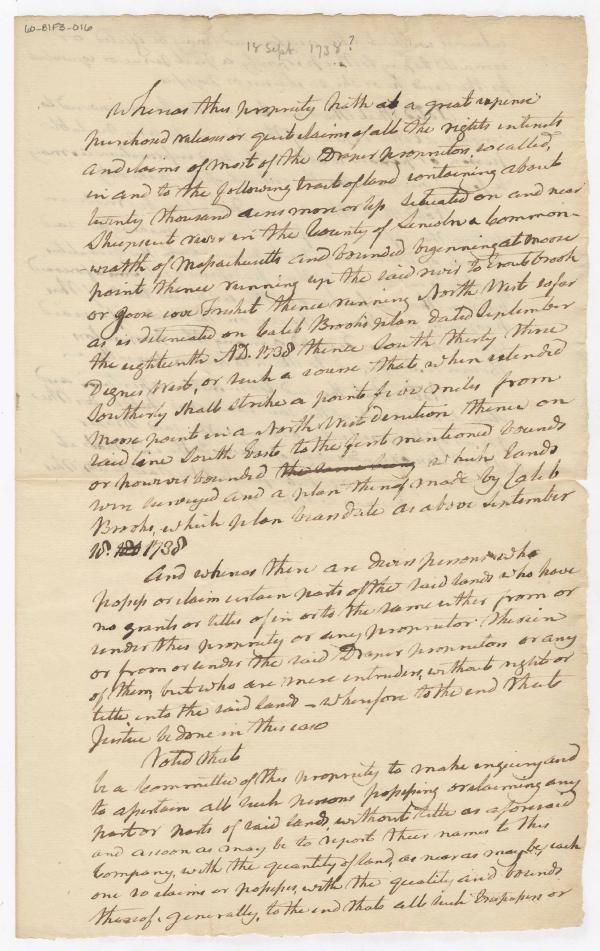 60-B1F3-016
18 Sept. 1738?
Whereas this propriety hath at a great expense
purchased releases or quit claims of all the rights intrests
and claims of most of the Draper proprietors, so called,
in and to the following tract of land containing about
twenty thousand acres more or less situated on and near
Sheepscut river in the County of Lincoln & Common-
-wealth of Massachusetts and bounded beginning at moose
point thence running up the said river to Trout brook
or goose cove Freshet thence running North West so far
as is delineated on Caleb Brooks plan dated September
the eighteenth A.D. 1738 thence South thirty three
Degrees West, or such a course that, when extended
Southerly shall strike a point five miles from
Moose point in a North West direction thence on
said line South East to the first mentioned bounds
or however bounded the same being which lands
were surveyed and a plan thereof made by Caleb
Brooks, which plan bears date as above September
18. 1738
And whereas there are divers persons who
possess or claim certain parts of the said lands who have
no grants or titles of in or to the same either from or
under this propriety or any proprietor therein
or from or under the said Draper proprietors or any
of them, but who are mere intruders, without right or
title, into the said land – wherefore to the end that
Justice be done in this case
Voted that
be a Committee of this propriety to make enquiry and
to ascertain all such persons possessing or claiming any
part or parts of said lands, without title as aforesaid
and as soon as may be to report their names to this
Company, with the quantity of land, as near as may be, each
one so claims or possesses, with the quality and bounds
thereof generally, to the end that all such trespassers or